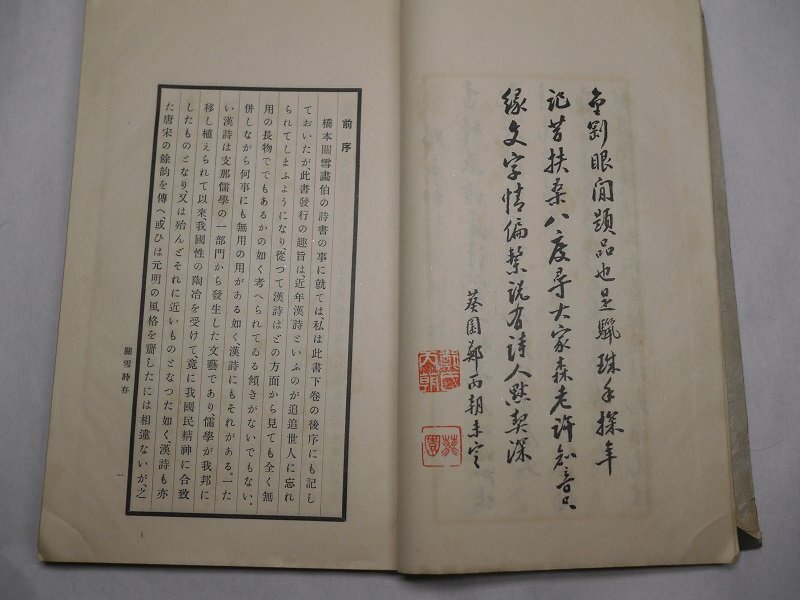 金剛眼閒題品也是驪珠手探年
記昔扶桑八度尋大家森老許知音
緣文字情偏繫說有詩人默契深
葵園鄭丙朝未定
前序
橋本關雪畫伯の詩書の事に就ては、私は此書下卷の後序にも記し
ておいたが、此書發行の趣旨は、近年漢詩といふのが追追世人に忘れ
られてしまふようになり、從つて漢詩はどの方面から見ても全く無
用の長物ででもあるかの如く考へられてゐる傾きがないでもない。
併しながら何事にも無用の用がある如く、漢詩にもそれがある。一た
い漢詩は支那儒學の一部門から發生した文藝であり、儒學が我邦に
移し植えられて以來、我國性の陶冶を受けて、竟に我國民精神に合致
したものとなり、又は殆んどそれに近いものとなつた如く、漢詩も亦
た唐宋の餘韵を傳へ、或ひは元明の風格を齎したには相違ないが、之
關雪詩存
一
1